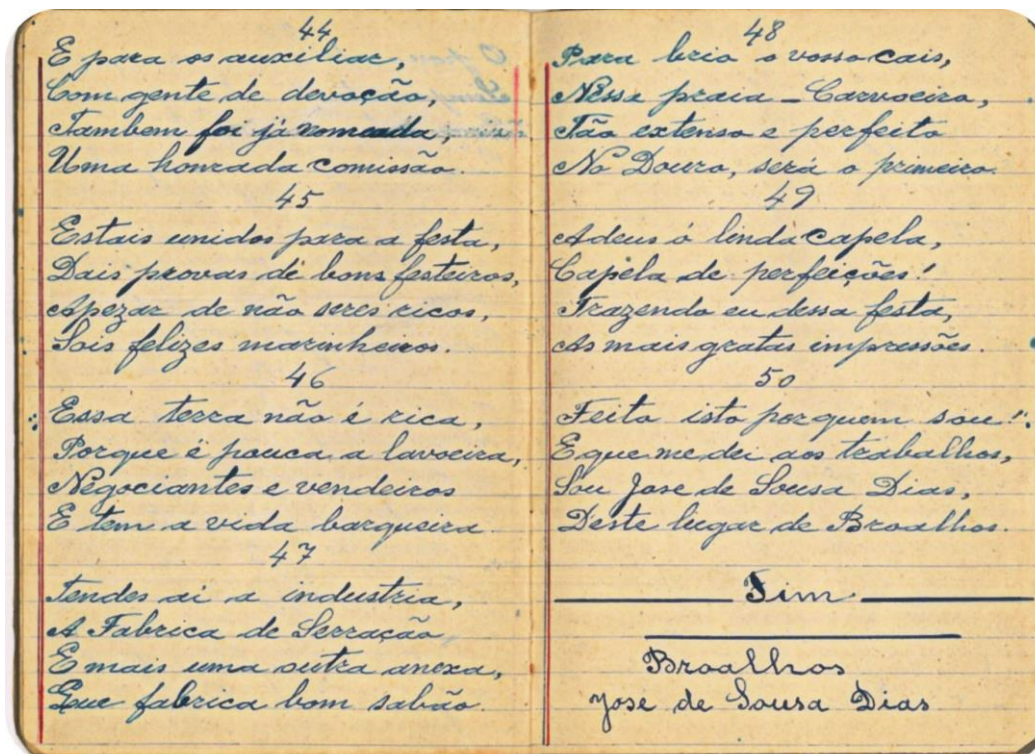 44
E para os auxiliar,
Com gente de devoção,
Tambem foi já nomeada,
Uma honrada comissão.
45
Estais unidos para a festa,
Dais provas de bons festeiros,
Apezar de não seres ricos,
Sois felizes marinheiros.
46
Essa terra não é rica,
Porque é pouca a lavoeira,
Negociantes e vendeiros
E tem a vida barqueira
47
Tendes ai a industria,
A Fabrica de Serração,
E mais uma outra anexa,
Que fabrica bom sabão.
48
Para brio o vosso cais,
Nesse praia - Carvoeiro,
Tão extenso e perfeito
No Douro, será o primeiro.
49
Adeus ó linda capela,
Capela de perfeições!
Trazendo eu dessa festa,
As mais gratas impressões.
50
Feito isto por quem sou!.
E que me dei aos trabalhos,
Sou Jose de Sousa Dias,
Deste lugar de Broalhos.
Fim
Broalhos
José de Sousa Dias